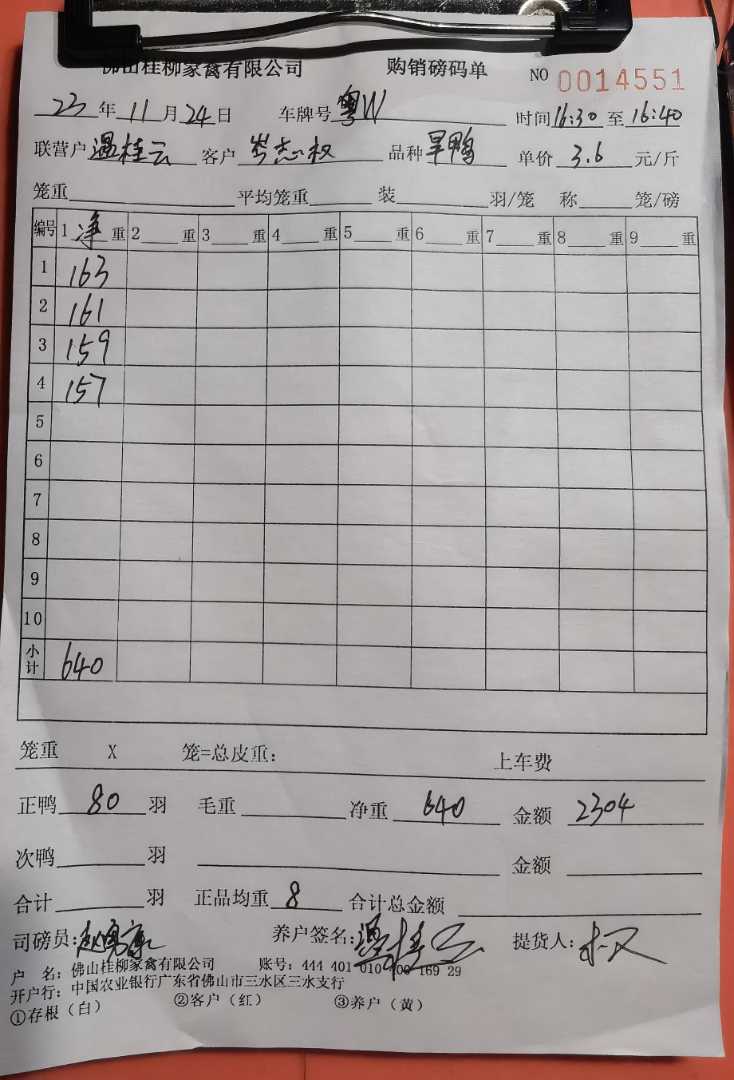 佛山桂柳家禽有限公司 购销磅码单 NO 0014551
23年11月24日 车牌号 粤W 时间16:30至16:40
联营户 温桂云 客户 岑志权 品种 旱鸭 单价 3.6 元/斤
笼重 平均笼重 装 羽/笼 称 笼/磅
编号 1 净 重 2 重 3 重 4 重 5 重 6 重 7 重 8 重 9 重
1 163
2 161
3 159
4 157
5
6
7
8
9
10
小计 640
笼重 X 笼=总皮重: 上车费
正鸭 80 羽 毛重 净重 640 金额 2304
次鸭 羽 金额
合计 羽 正品均重 8 合计总金额
司磅员: 养户签名: 温桂云 提货人: 权
户 名: 佛山桂柳家禽有限公司 账号: 444 401 010 400 169 29
开户行: 中国农业银行广东省佛山市三水区三水支行
①存根（白） ②客户（红） ③养户（黄）